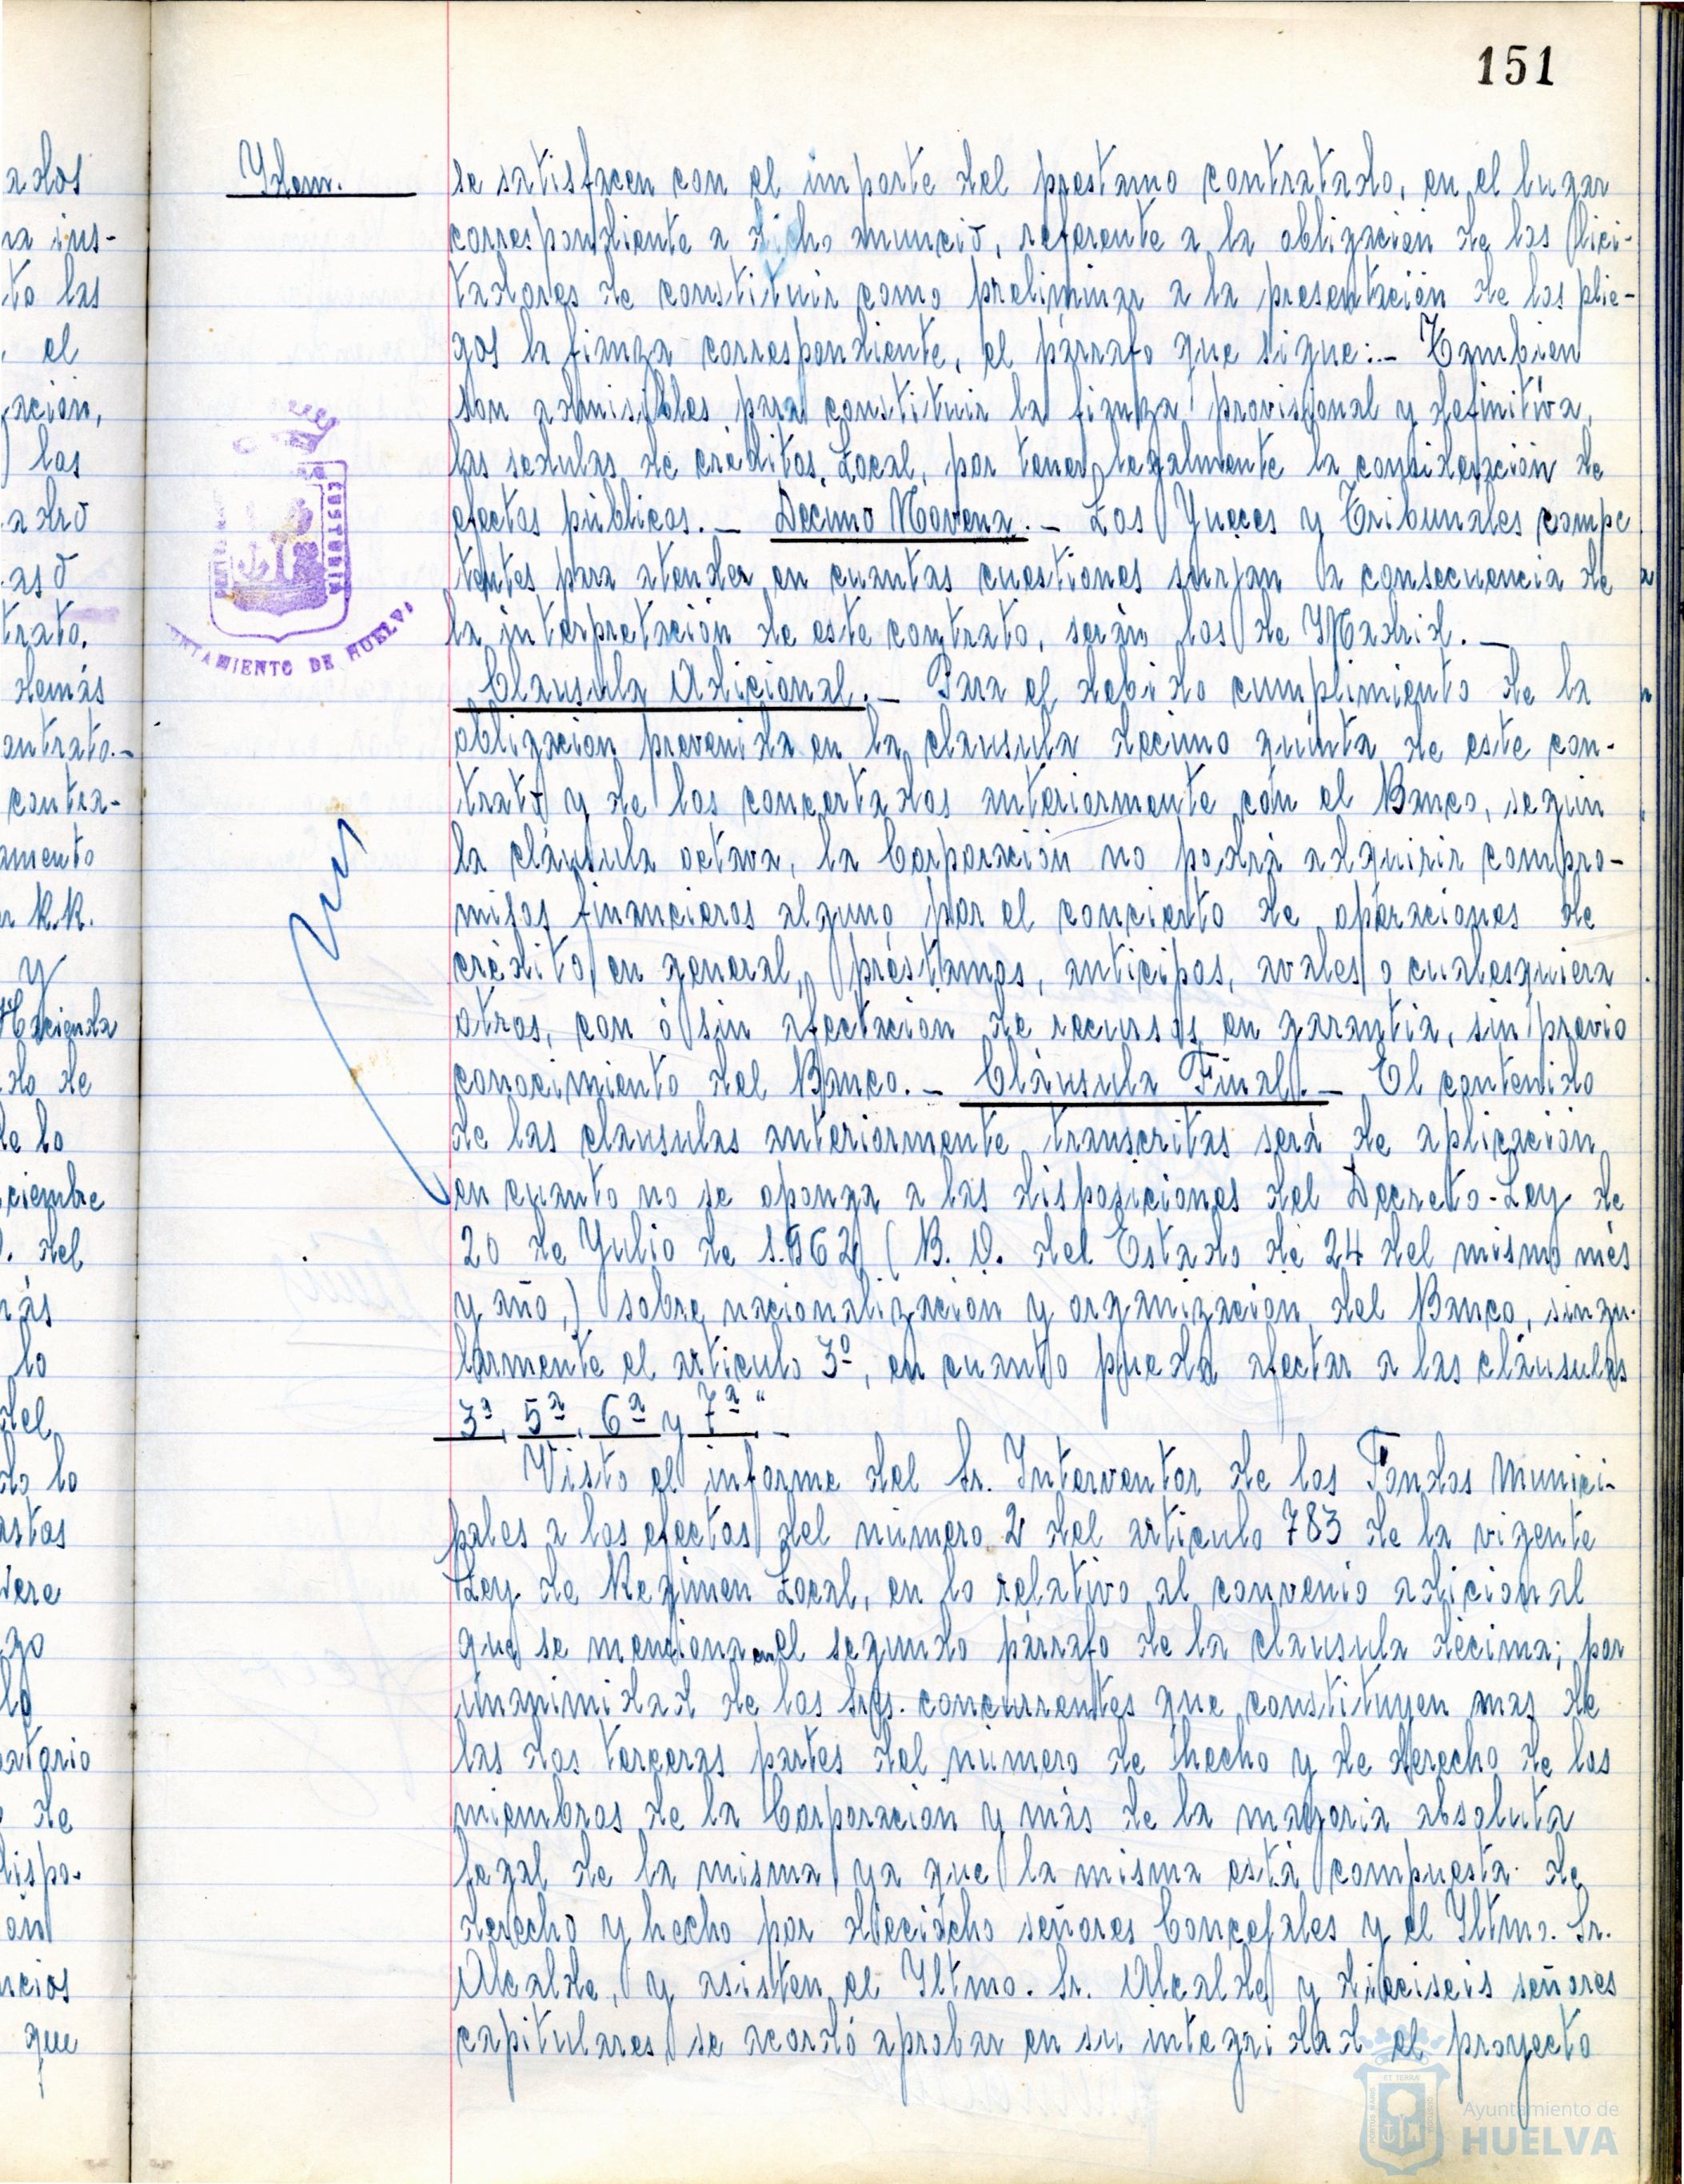 151
Ydem.
se satisfacen con el importe del prestamo contratado, en el lugar
correspondiente a dicho anuncio, referente a la obligación de los lici-
tadores de constituir como preliminar a la presentación de los plie-
gos la fianza correspondiente, el párrafo que sigue:- Tambien
son admisibles para constituir la fianza provisional y definitiva,
las sedulas de créditos Local, por tener legalmente la consideración de
efectos públicos.- Décimo Novena.- Los Jueces y Tribunales compe
tentes para atender en cuantas cuestiones surjan a consecuencia de
la interpretación de este contrato, serán los de Madrid.-
Clausula Adicional.- Para el debido cumplimiento de la
obligación prevenida en la clausula decimo quinta de este con-
trato y de los concertados anteriormente con el Banco, según
la cláusula octava, la Corporación no podrá adquirir compro-
misos financieros alguno por el concierto de operaciones de
crédito en general, préstamos, anticipos, avales o cualesquiera
otros, con ó sin afectación de recursos en garantía, sin previo
conocimiento del Banco.- Cláusula Final.- El contenido
de las clausulas anteriormente transcritas será de aplicación
en cuanto no se oponga a las disposiciones del Decreto-Ley de
20 de Julio de 1.962 (B. O. del Estado de 24 del mismo més
y año,) sobre nacionalización y organización del Banco, singu-
larmente el articulo 3º, en cuanto pueda afectar a las cláusulas
3ª, 5ª, 6ª y 7ª".-
Visto el informe del Sr. Interventor de los Fondos Munici-
pales a los efectos del número 2 del articulo 783 de la vigente
Ley de Regimen Local, en lo relativo al convenio adicional
que se menciona en el segundo párrafo de la clausula décima; por
unanimidad de los Srs. concurrentes que constituyen mas de
las dos terceras partes del número de hecho y de derecho de los
miembros de la Corporación y más de la mayoria absoluta
legal de la misma ya que la misma está compuesta de
derecho y hecho por dieciocho señores Concejales y el Yltmo. Sr.
Alcalde, y asisten el Yltmo. Sr. Alcalde y dieciseis señores
capitulares, se acordó aprobar en su integridad el proyecto
AYUNTAMIENTO DE HUELVA
Ayuntamiento de
HUELVA